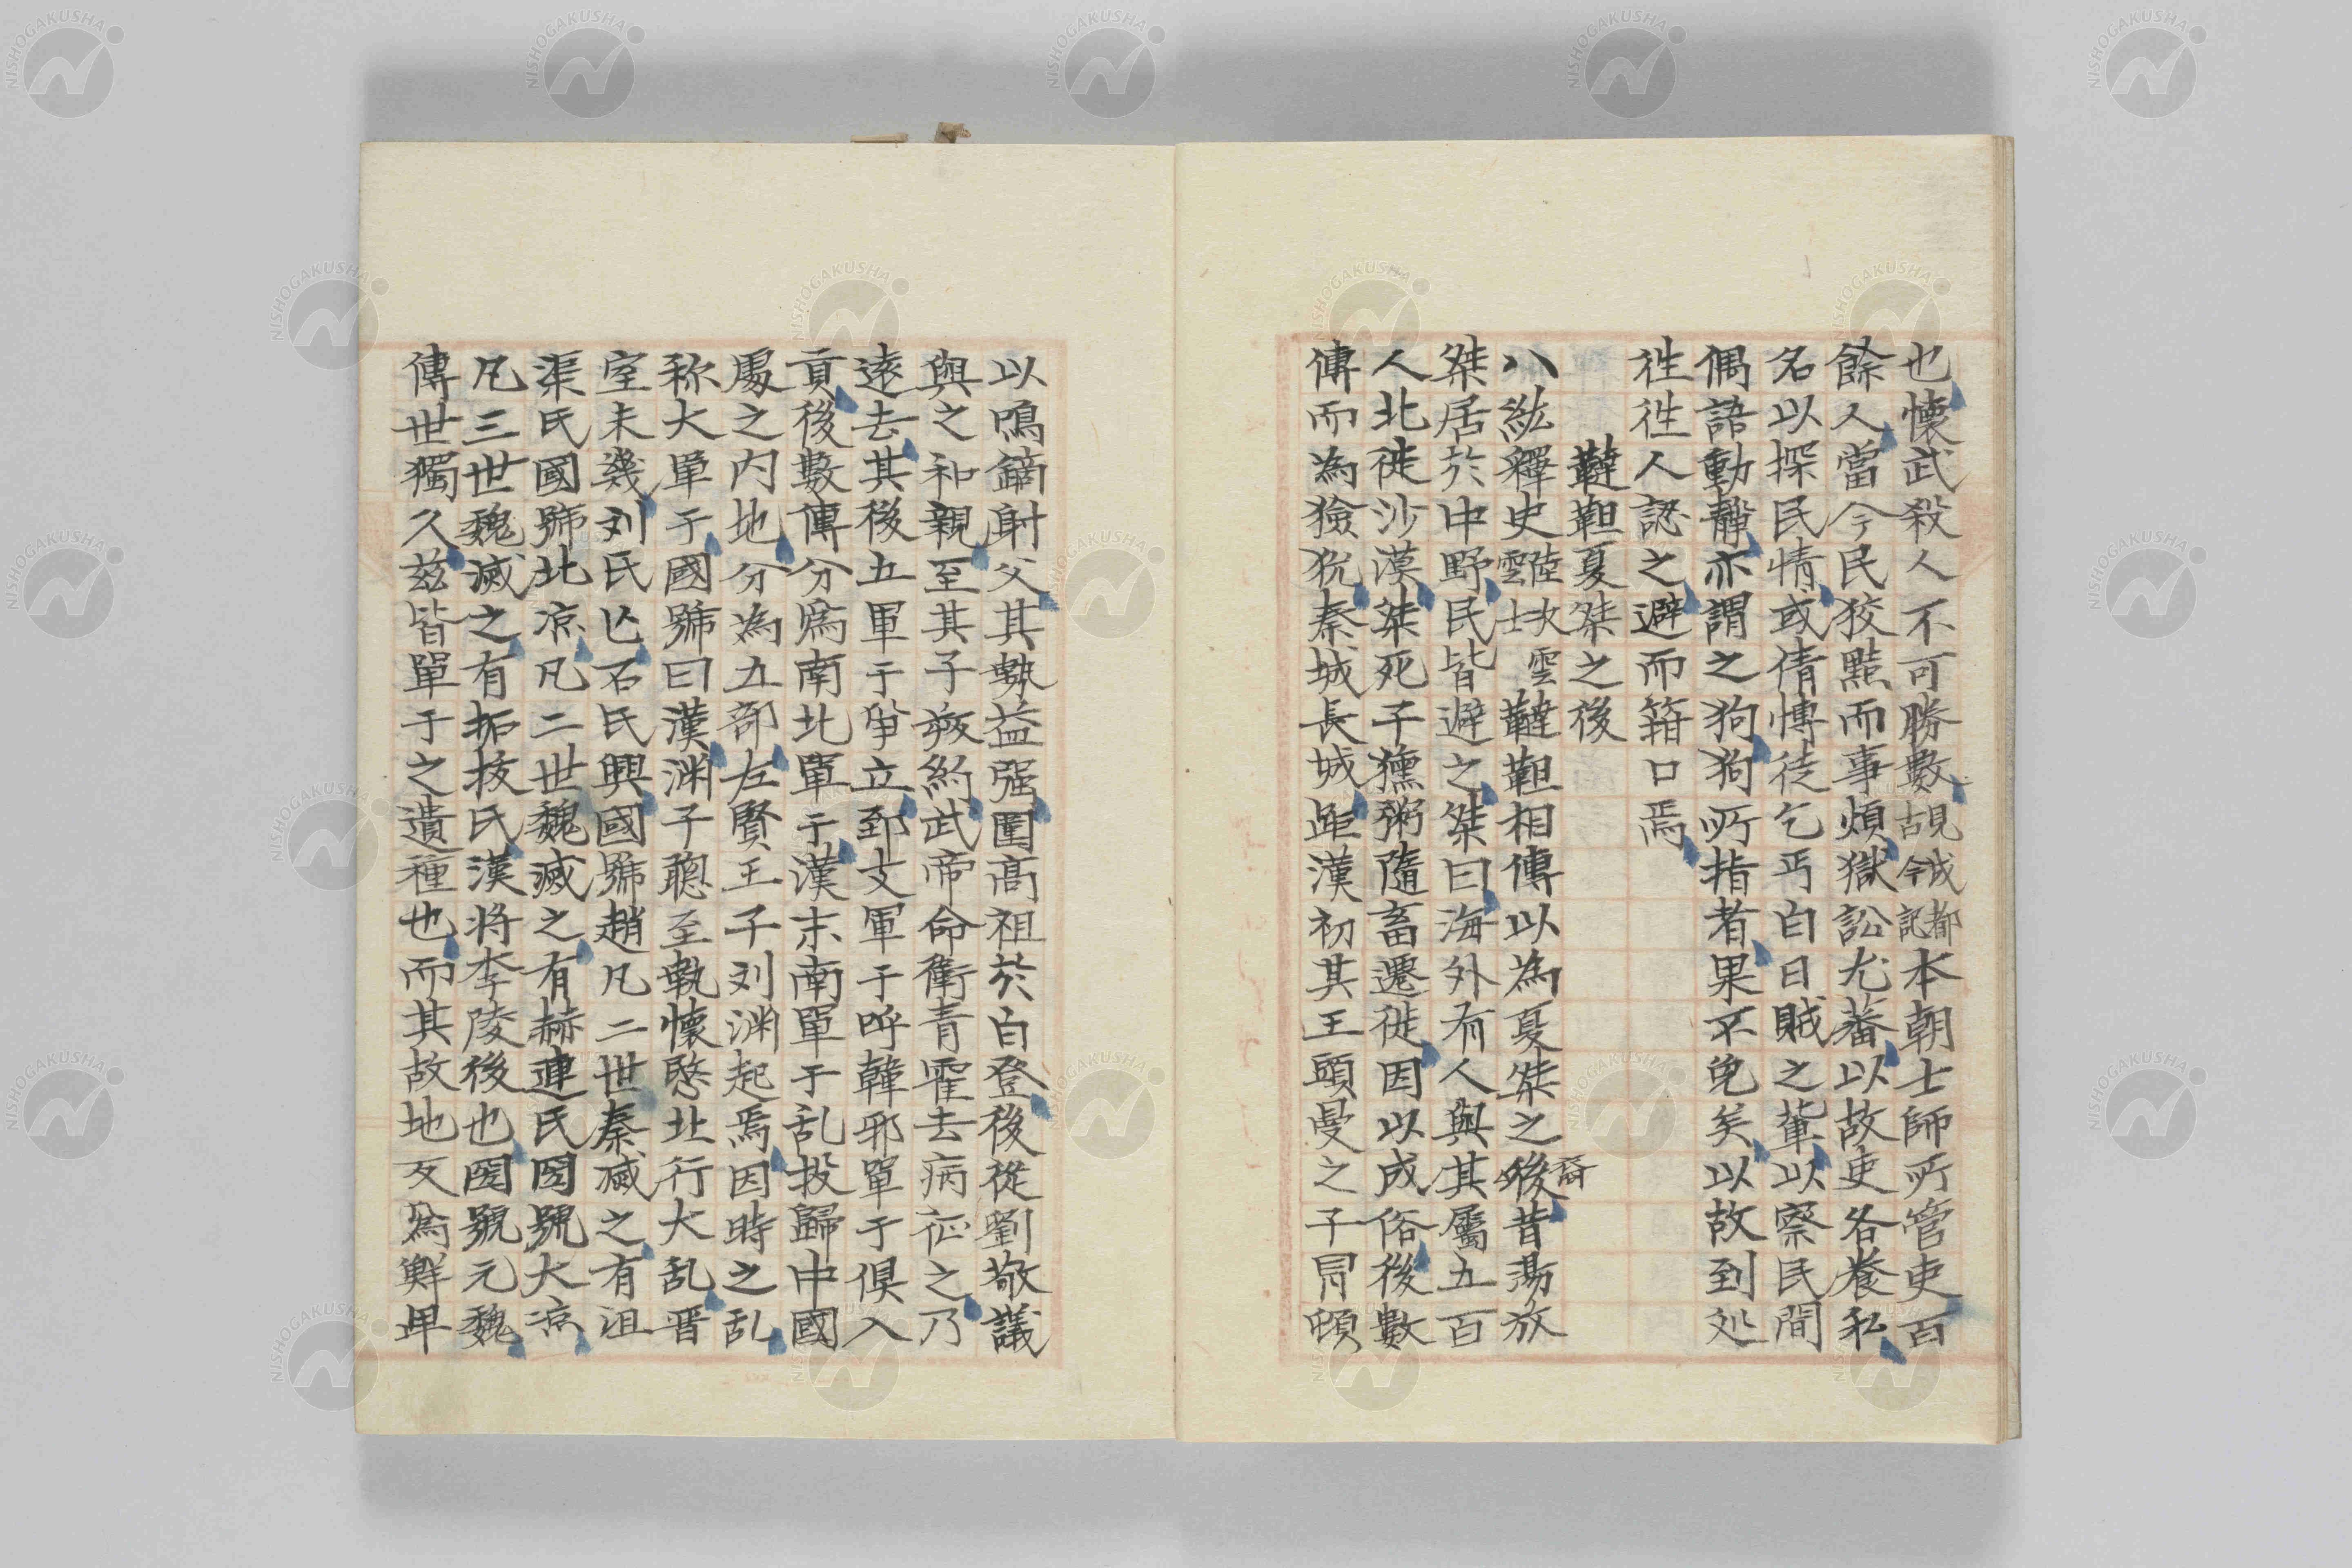 也懷武殺人不可勝數見成都古今記本朝士師所管吏百
餘人當今民狡黠而事煩獄訟尤蕃以故吏各養私
名以探民情或倩博徒乞丐白日賊之輩以察民間
偶語動靜亦謂之狗狗所指者果不免矣以故到処
徃徃人認之避而箝口焉
韃靼夏桀之後
八紘釋史陸次雲雲士雲韃靼相傳以為夏桀之後裔昔湯放
桀居於中野民皆避之桀曰海外有人與其屬五百
人北徙沙漠桀死子獯粥隨畜遷徙因以成俗後數
傳而為獫狁秦城長城距漢初其王頭曼之子冐頓
以鳴鏑射父其埶益强圍高祖於白登後從劉敬議
與之和親至其子敖約武帝命衛青霍去病征之乃
遠去其後五單于爭立郅支單于呼韓邪單于俱入
貢後數傳分爲南北單于漢末南單于乱投歸中國
處之内地分為五部左賢王子刘渊起焉因時之乱
称大單于國號曰漢渊子聰至執懷愍北行大乱晋
室未幾刘氏亾石氏興國號趙凡二世秦滅之有沮
渠氏國號北凉凡二世魏滅之有赫連氏國號大凉
凡三世魏滅之有拓抜氏漢将李陵後也國號元魏
傳世獨久兹皆單于之遺種也而其故地反為鮮卑